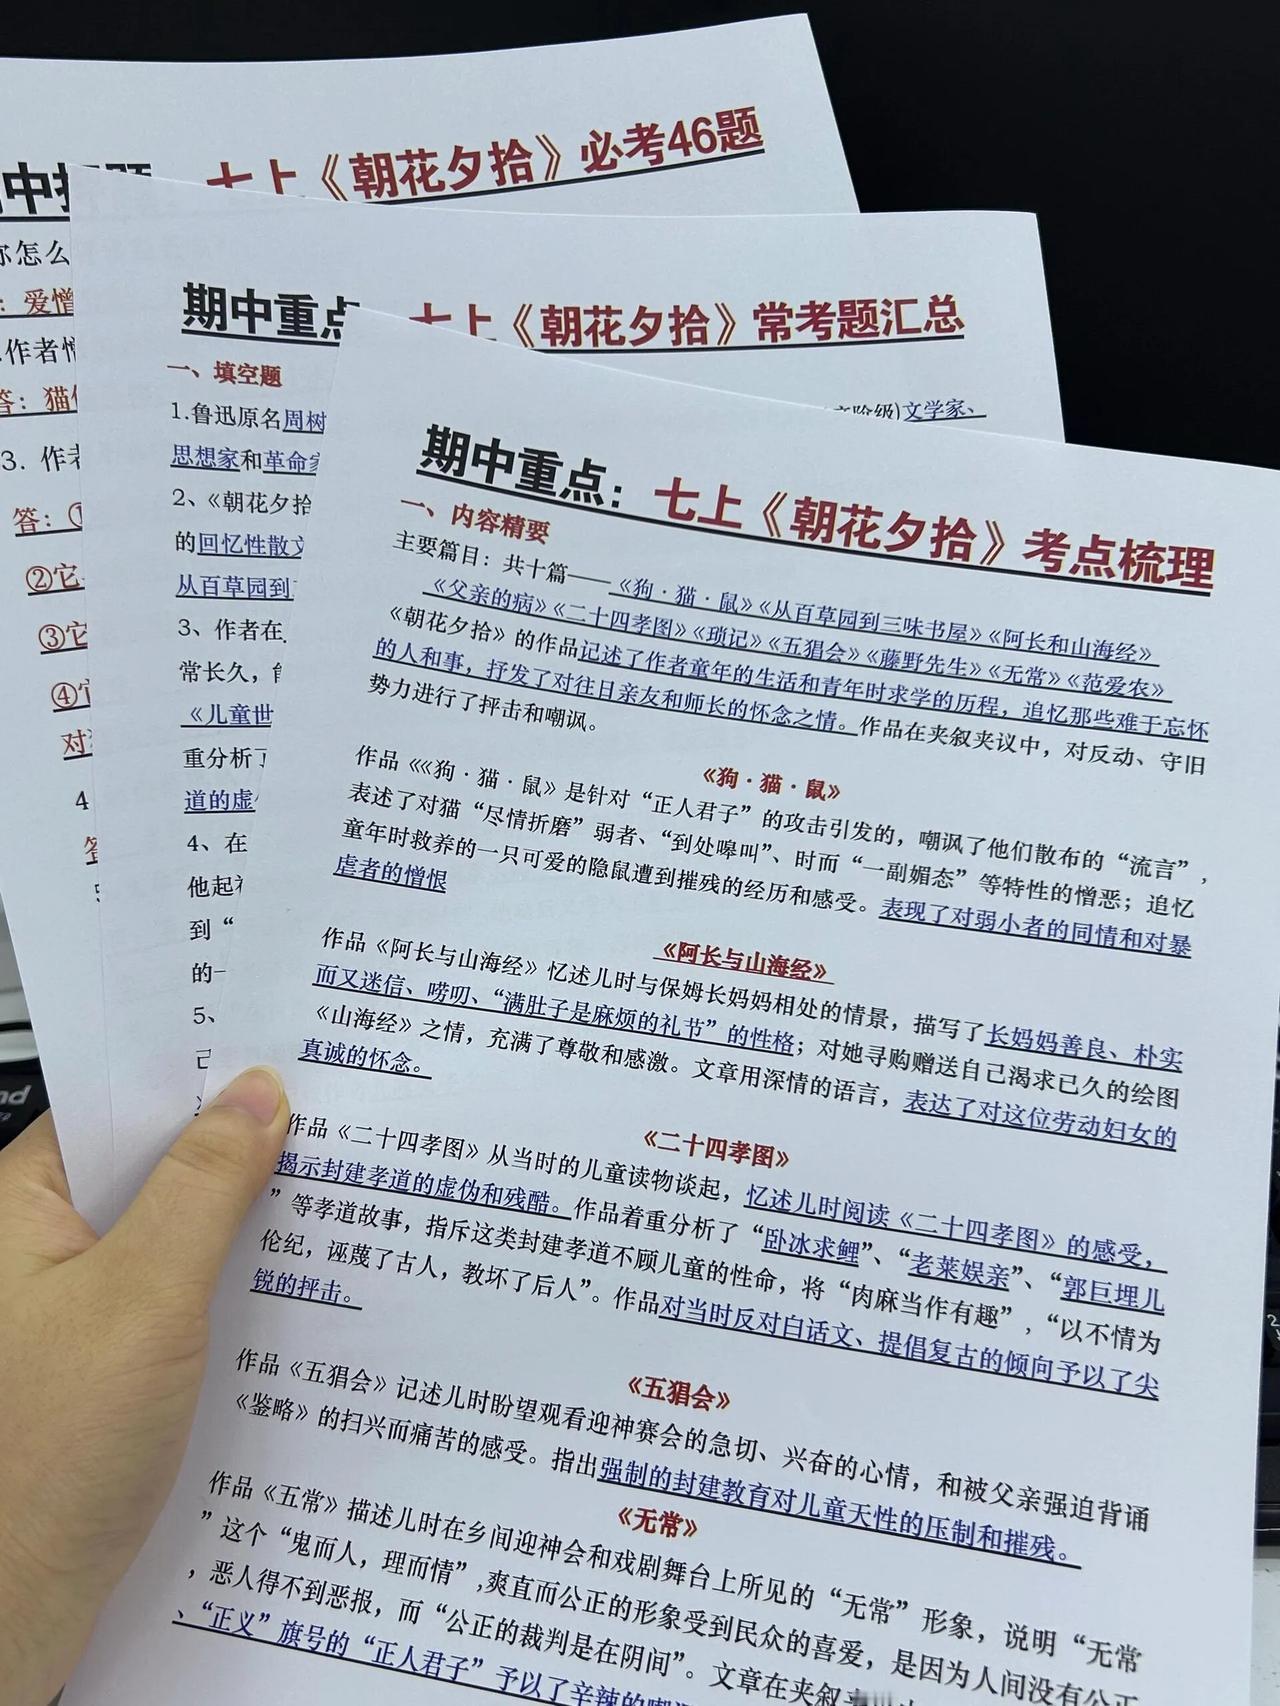 七上《朝花夕拾》必考46题
你怎么
：爱憎
.作者
答：猫
3. 作者
答：①
②它
③它
④它
对
4
期中重点
七上《朝花夕拾》常考题汇总
一、填空题
1.鲁迅原名周树
文学家、
思想家和革命家
2、《朝花夕拾
的回忆性散文
从百草园到
3、作者在
常长久，
《儿童世
重分析了
道的虚
4、在
他起
到“
的一
5、
己
期中重点：七上《朝花夕拾》考点梳理
一、内容精要
主要篇目：共十篇——《狗·猫·鼠》《从百草园到三味书屋》《阿长和山海经》
《父亲的病》《二十四孝图》《琐记》《五猖会》《藤野先生》《无常》《范爱农》
《朝花夕拾》的作品记述了作者童年的生活和青年时求学的历程，追忆那些难于忘怀
的人和事，抒发了对往日亲友和师长的怀念之情。作品在夹叙夹议中，对反动、守旧
势力进行了抨击和嘲讽。
《狗·猫·鼠》
作品《《狗·猫·鼠》是针对“正人君子”的攻击引发的，嘲讽了他们散布的“流言”，
表述了对猫“尽情折磨”弱者、“到处嗥叫”、时而“一副媚态”等特性的憎恶；追忆
童年时救养的一只可爱的隐鼠遭到摧残的经历和感受。表现了对弱小者的同情和对暴
虐者的憎恨
《阿长与山海经》
作品《阿长与山海经》忆述儿时与保姆长妈妈相处的情景，描写了长妈妈善良、朴实
而又迷信、唠叨、“满肚子是麻烦的礼节”的性格；对她寻购赠送自己渴求已久的绘图
《山海经》之情，充满了尊敬和感激。文章用深情的语言，表达了对这位劳动妇女的
真诚的怀念。
《二十四孝图》
作品《二十四孝图》从当时的儿童读物谈起，忆述儿时阅读《二十四孝图》的感受，
揭示封建孝道的虚伪和残酷。作品着重分析了“卧冰求鲤”、“老莱娱亲”、“郭巨埋儿
”等孝道故事，指斥这类封建孝道不顾儿童的性命，将“肉麻当作有趣”，“以不情为
伦纪，诬蔑了古人，教坏了后人”。作品对当时反对白话文、提倡复古的倾向予以了尖
锐的抨击。
《五猖会》
作品《五猖会》记述儿时盼望观看迎神赛会的急切、兴奋的心情，和被父亲强迫背诵
《鉴略》的扫兴而痛苦的感受。指出强制的封建教育对儿童天性的压制和摧残。
《无常》
作品《五常》描述儿时在乡间迎神会和戏剧舞台上所见的“无常”形象，说明“无常
”这个“鬼而人，理而情”,爽直而公正的形象受到民众的喜爱，是因为人间没有公正
，恶人得不到恶报，而“公正的裁判是在阴间”。文章在夹叙
、“正义”旗号的“正人君子”予以了辛辣的